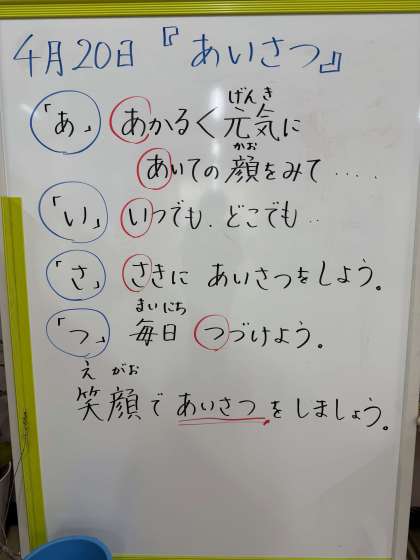 4月20日『あいさつ』
「あ」 あかるく元気に
げんき
あいての顔をみて・・・・・
かお
「い」 いつでも、どこでも・・
「さ」 さきに あいさつをしよう。
「つ」 毎日 つづけよう。
まいにち
えがお
笑顔で あいさつをしましょう。